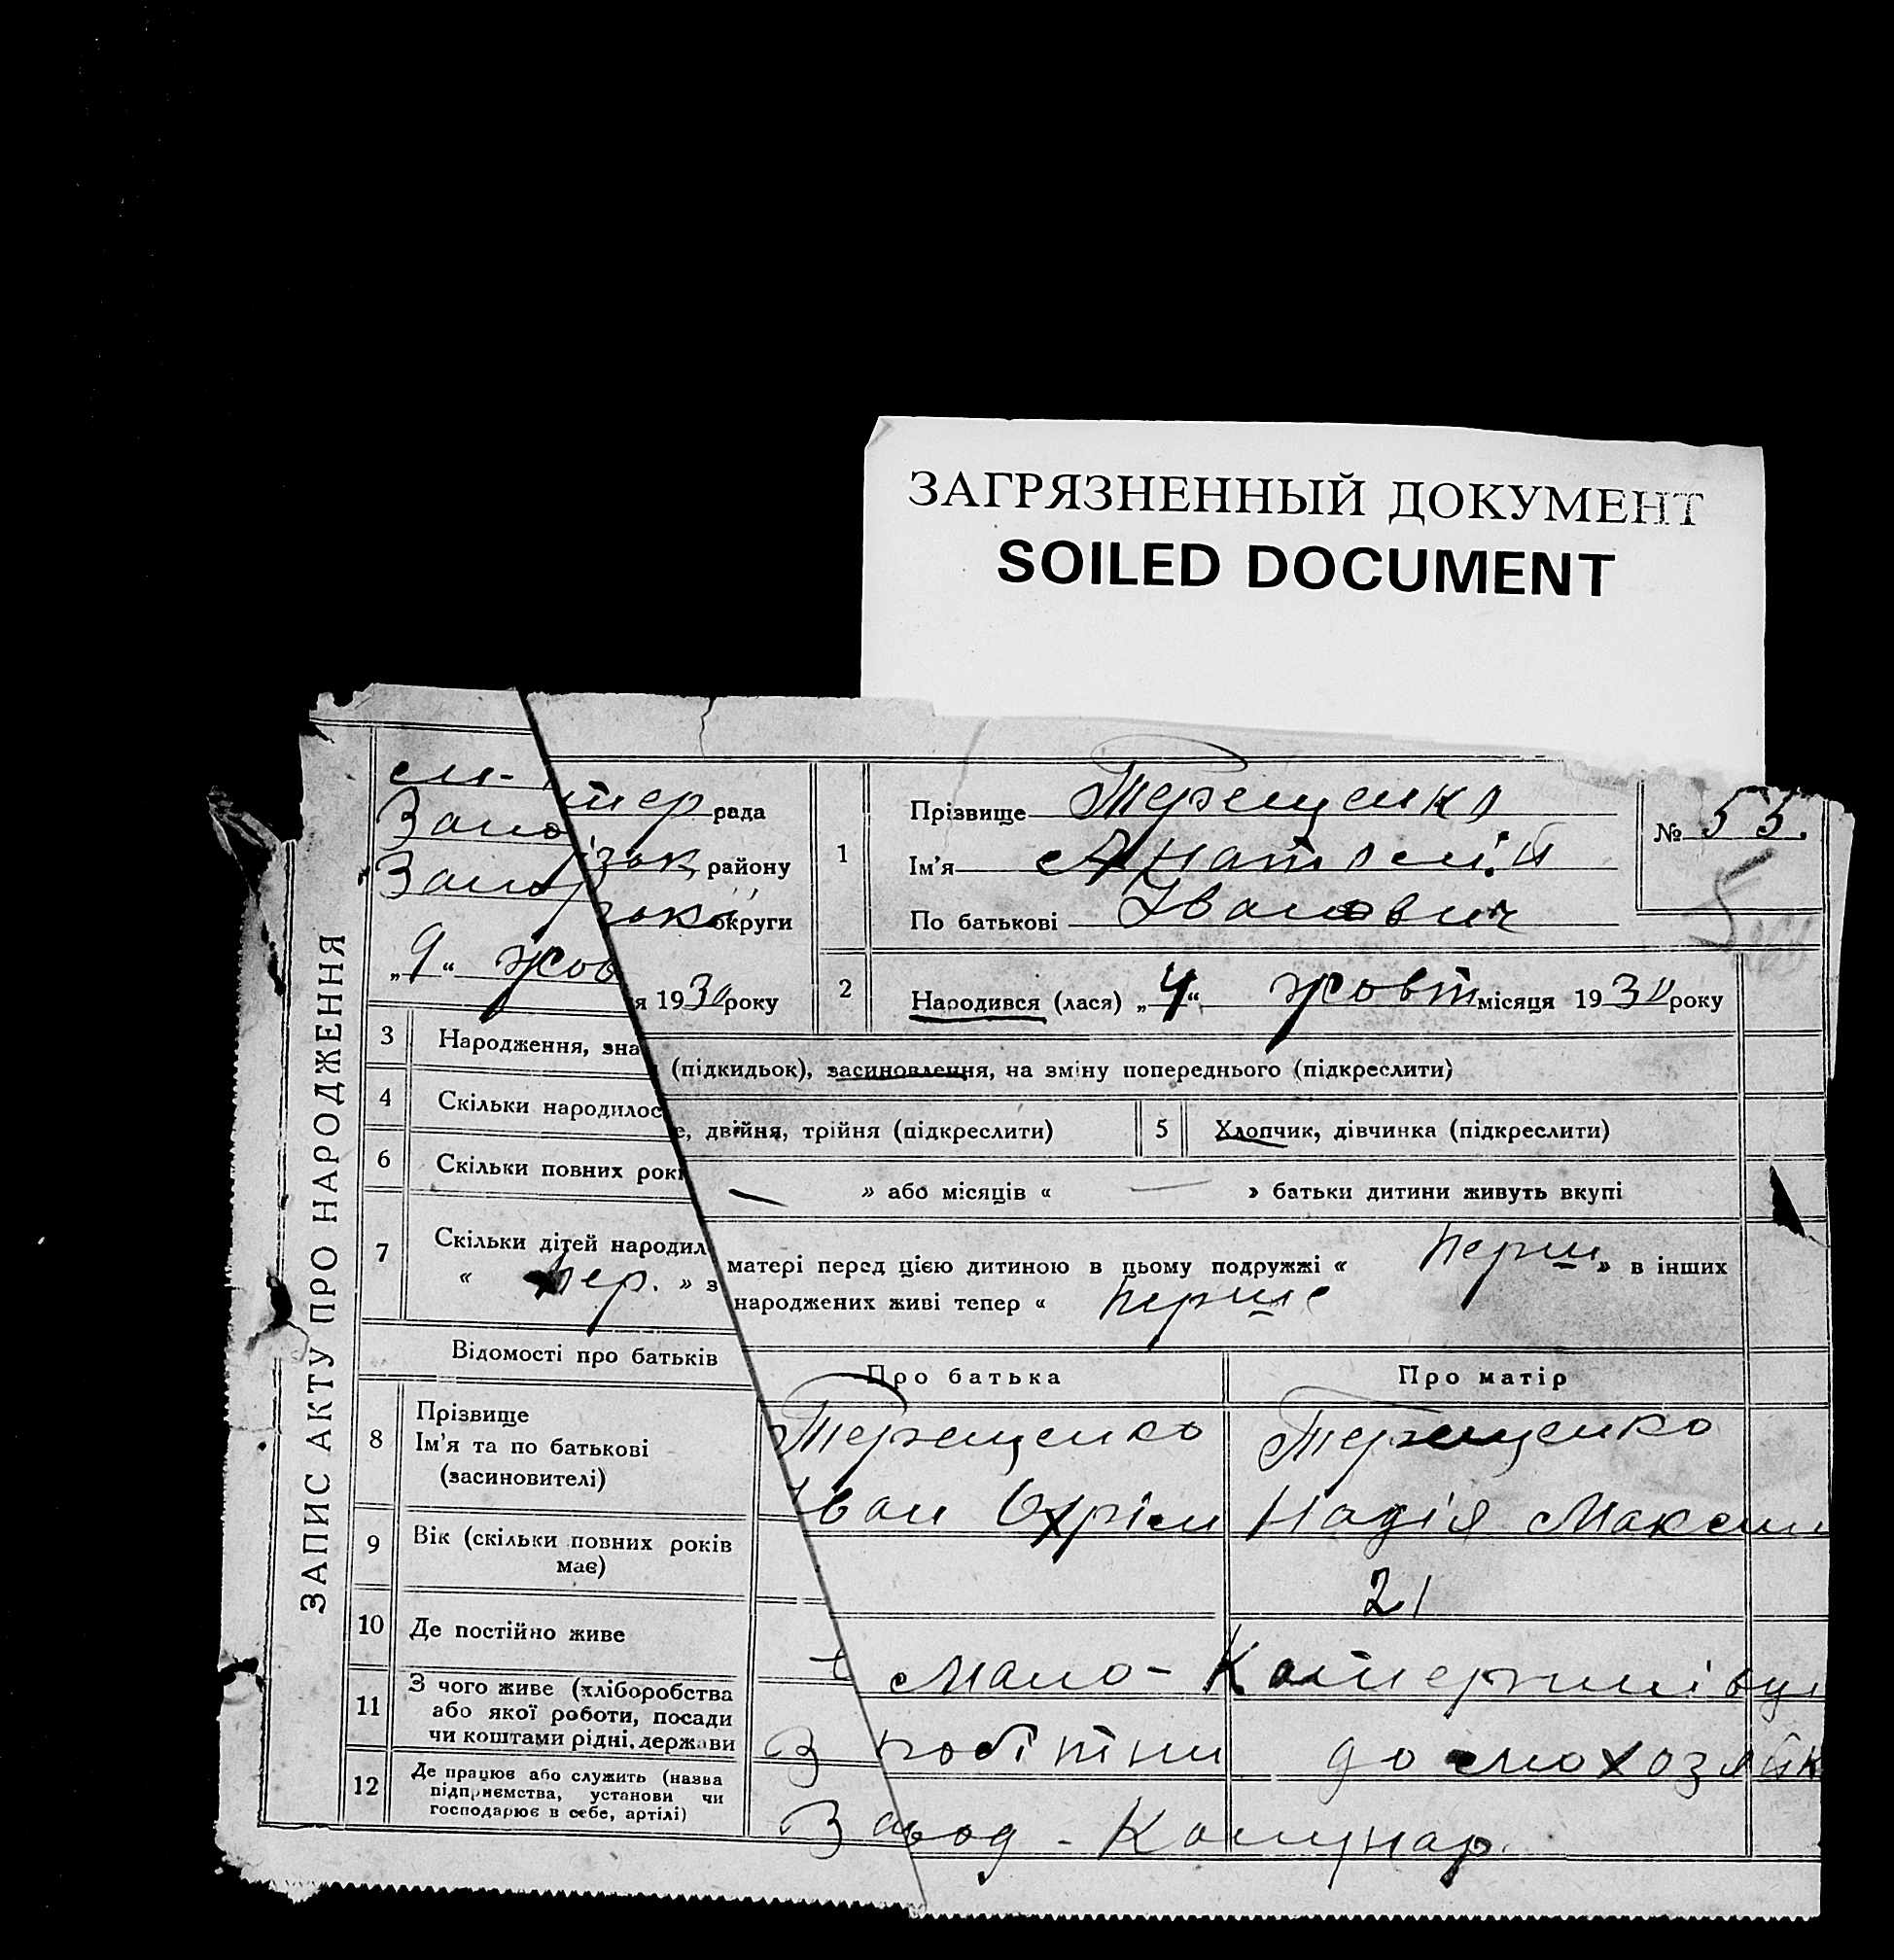 ЗАГРЯЗНЕННЫЙ ДОКУМЕНТ
SOILED DOCUMENT
ЗАПИС АКТУ ПРО НАРОДЖЕННЯ
рада
району
округи
„9“ жов я 1930 року
1
Прізвище Терещенко
Ім'я Анатолій
По батькові Іванович
№ 55.
2
Народився (лася) „4“ жовт місяця 1930 року
3 Народження, зна (підкидьок), засиновлення, на зміну попереднього (підкреслити)
4 Скільки народилос е, двійня, трійня (підкреслити)
5 Хлопчик, дівчинка (підкреслити)
6 Скільки повних рокі » або місяців « » батьки дитини живуть вкупі
7 Скільки дітей народил матері перед цією дитиною в цьому подружжі « перш » в інших
« пер. » з народжених живі тепер « перше
Відомості про батьків
Про батька
Про матір
8 Прізвище
Ім'я та по батькові
(засиновителі)
Терещенко
Іван Охрім
Терещенко
Надія Максим
9 Вік (скільки повних років
має)
21
10 Де постійно живе
Мало-Катеринівці
11 З чого живе (хліборобства
або якої роботи, посади
чи коштами рідні, держави
З робітни
домохозяйк
12 Де працює або служить (назва
підприємства, установи чи
господарює в себе, артілі)
Завод - Комунар.